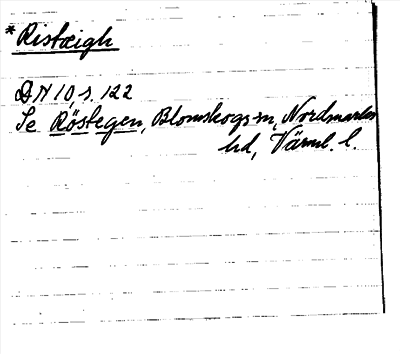 *Ristæigh
DN 10, s. 122
Se Röstegen, Blomskogs sn, Nordmarks
hd, Värml. l.